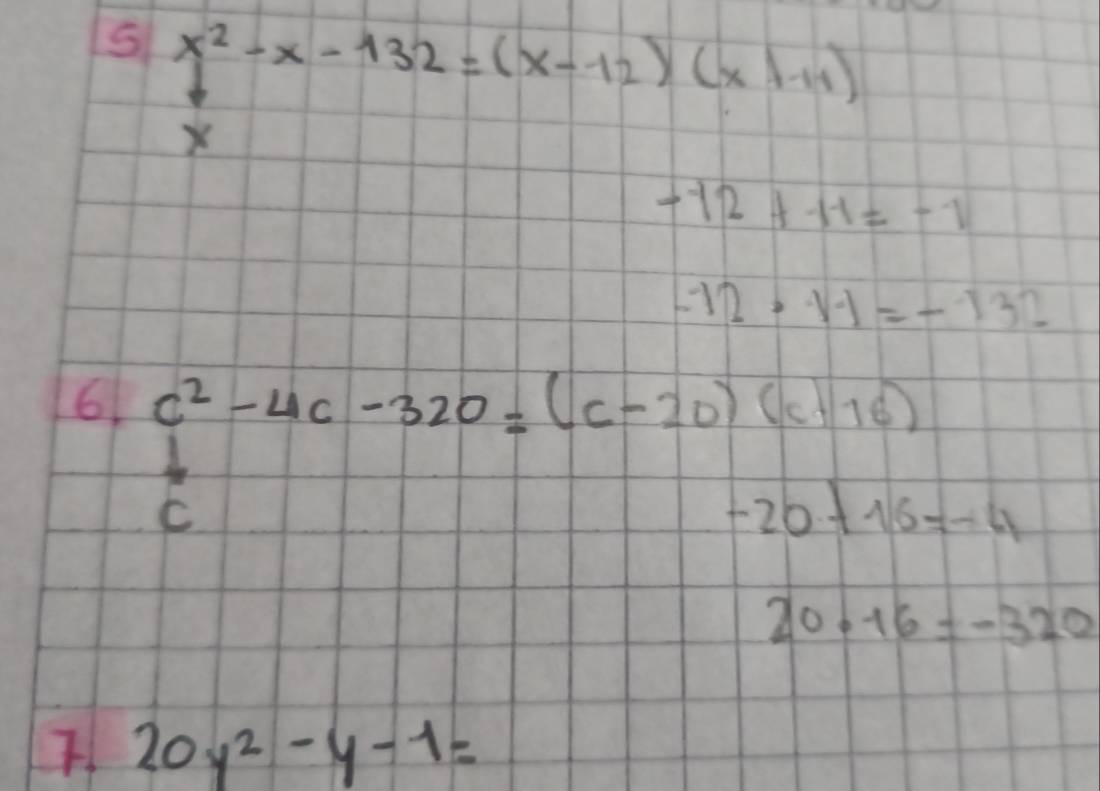 5 x² - x - 132 = (x - 12) (x + 11)
x
-12 + 11 = -1
-12 · 11 = -132
6. c² - 4c - 320 = (c - 20) (c + 16)
c
-20 + 16 = -4
20 · 16 = -320
7. 20y² - y - 1 =